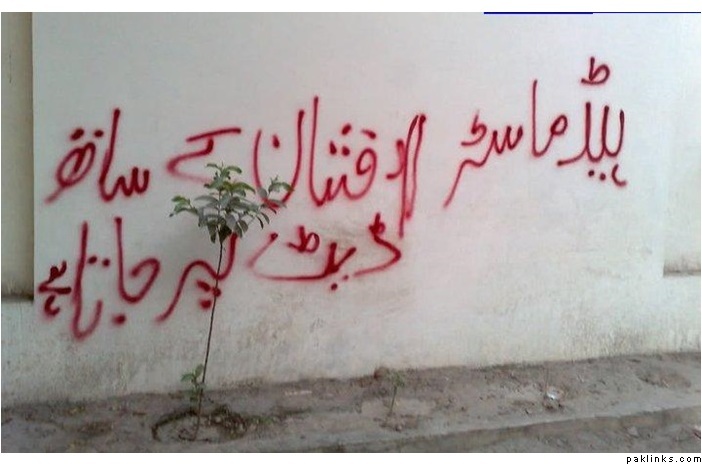 ہیڈ ماسٹر کے ساتھ
ڈیٹ پر جاتا ہے
paklinks.com